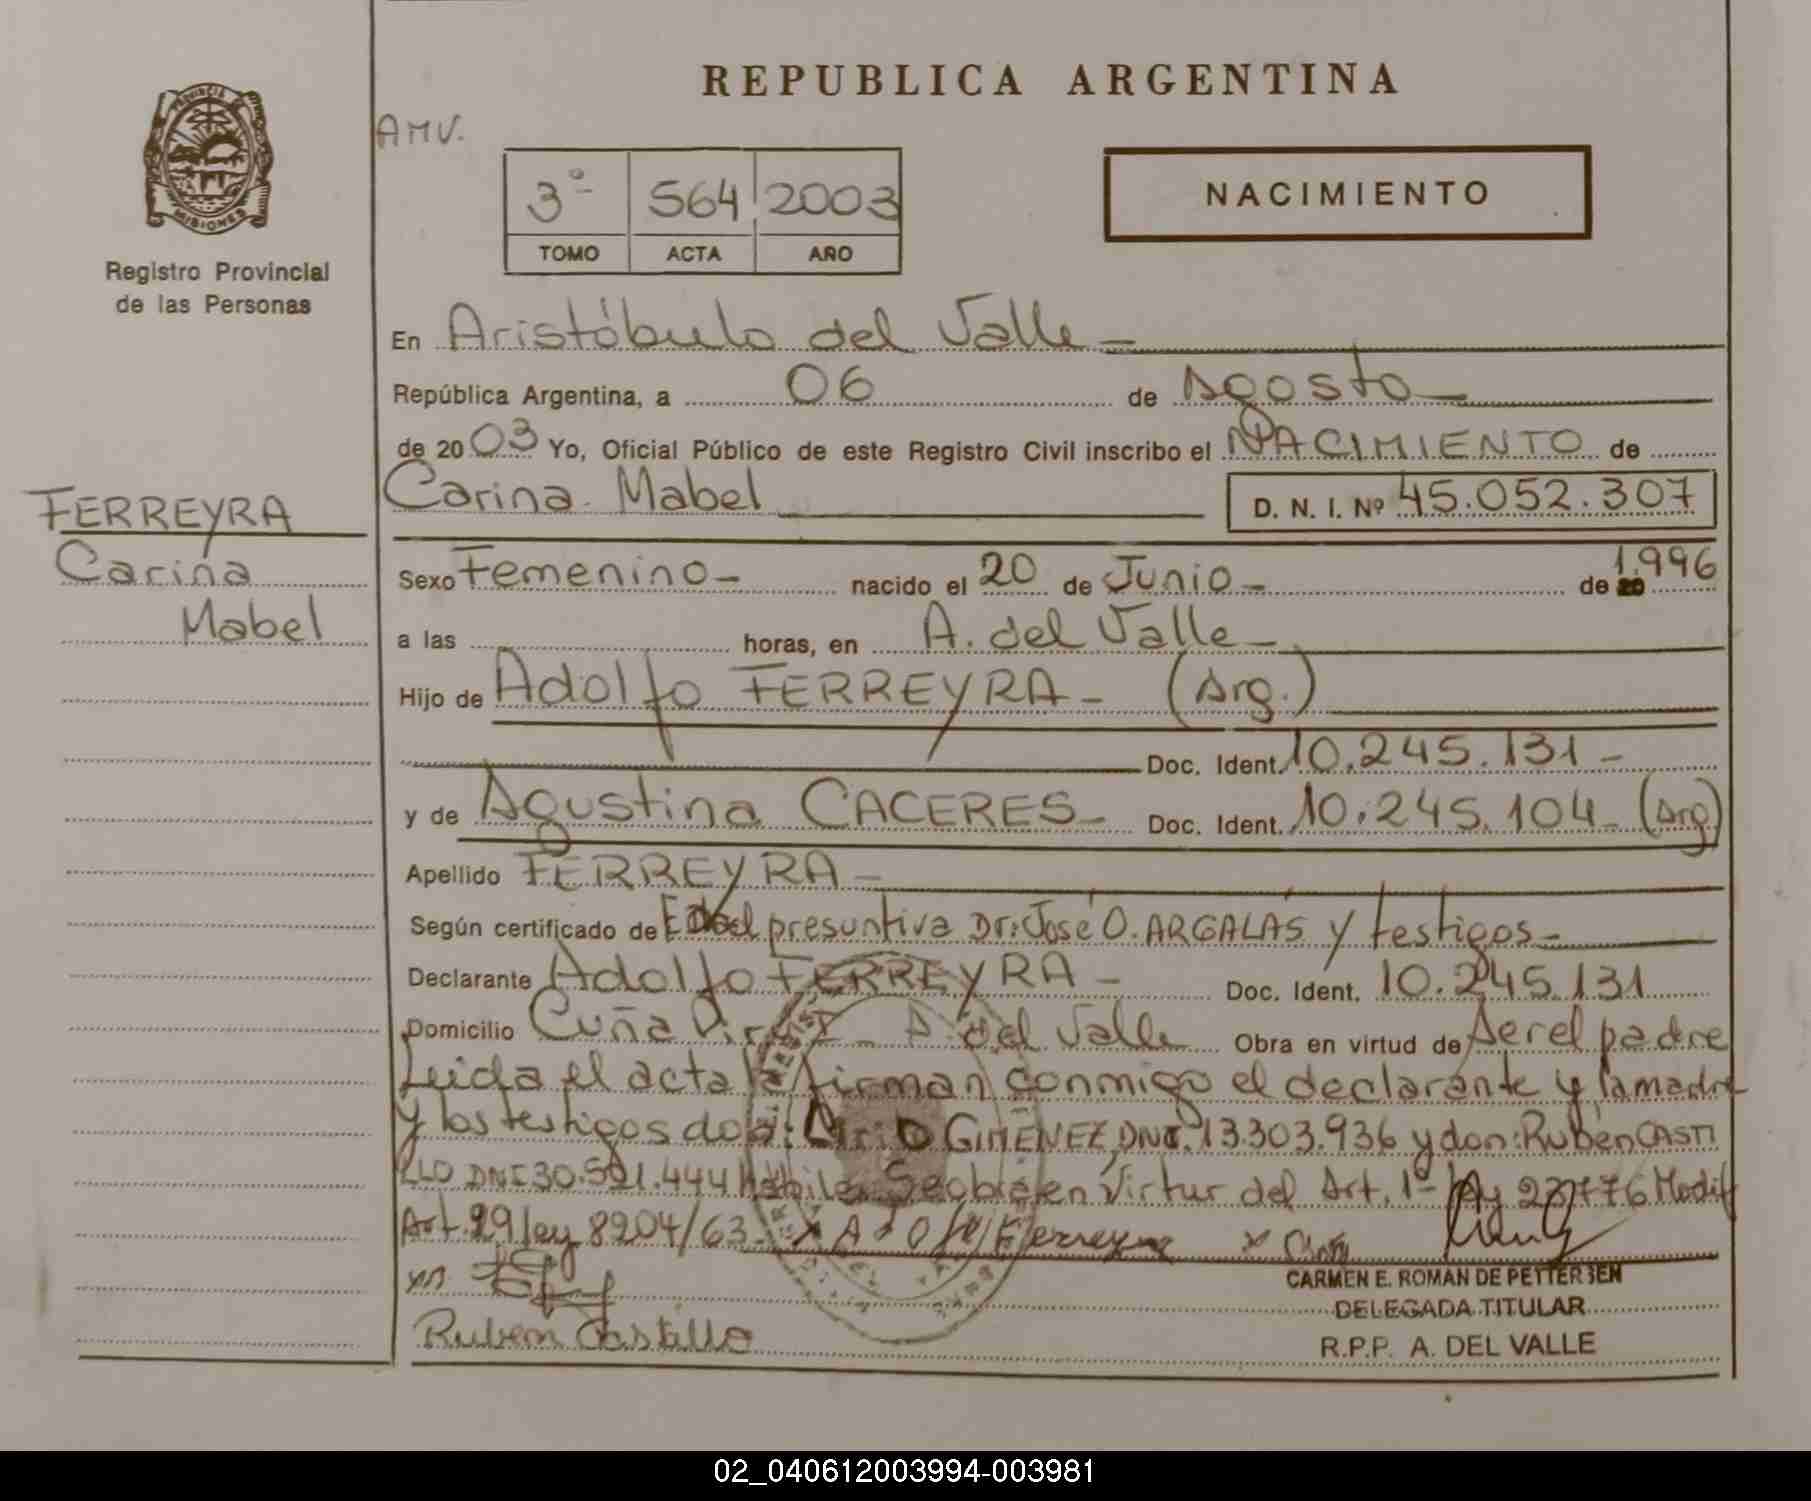 REPUBLICA ARGENTINA
AMV.
PROVINCIA DE
MISIONES
Registro Provincial
de las Personas
3º 564 2003
TOMO ACTA AÑO
NACIMIENTO
En Aristóbulo del Valle
República Argentina, a 06 de Agosto
de 2003 Yo, Oficial Público de este Registro Civil inscribo el NACIMIENTO de
Carina Mabel D. N. I. Nº 45.052.307
FERREYRA
Carina
Mabel
Sexo Femenino nacido el 20 de Junio de 1.996
a las horas, en A. del Valle
Hijo de Adolfo FERREYRA (Arg.)
Doc. Ident. 10.245.131
y de Agustina CACERES Doc. Ident. 10.245.104 (Arg)
Apellido FERREYRA
Según certificado de Edad presuntiva Dr: José O. ARGALAS y testigos
Declarante Adolfo FERREYRA Doc. Ident. 10.245.131
Domicilio Cuña A. del Valle Obra en virtud de Ser el padre
Leida el acta la firman conmigo el declarante y la madre
y los testigos GIMENEZ, DNI. 13.303.936 y don: Rubén CASTI
LLO DNI 30.521.444 en Virtur del Art. 1º Ley Modif
Art. 29 ley 8204/63 Adolfo Ferreyra
CARMEN E. ROMAN DE PETTERSEN
DELEGADA TITULAR
Ruben Castillo
R.P.P. A. DEL VALLE
02_040612003994-003981